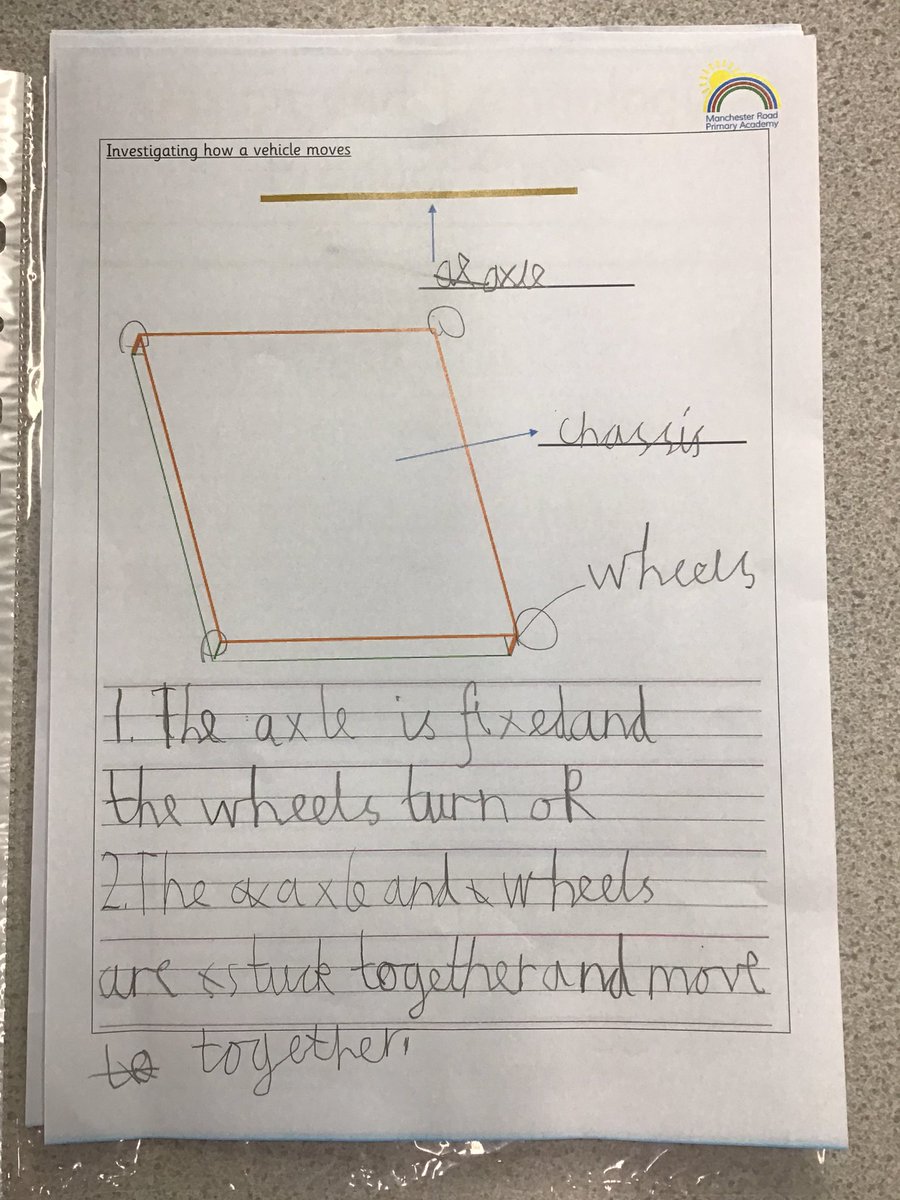 Manchester Road
Primary Academy
Investigating how a vehicle moves
axle
chassis
wheels
1. The axle is fixedand
the wheels turn oR
2. The axle and wheels
are stuck together and move
together.